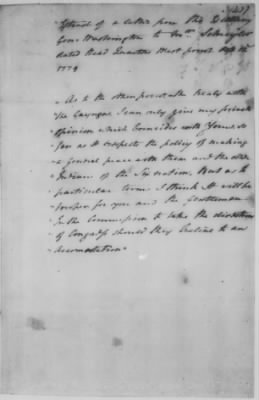 Extract of a letter from His Excellency
Genl Washington to Genl Schuyler
dated Head Quarters West point
1779
"As to the proposed Treaty with
"the Cayugas I can only give my private
"opinion which Coincides with Yours, so
"far as it respects the policy of making
"a General peace with them and the other
"Indians of the Six nations, But as to
"particular terms I think it will be
"proper for you and the Gentlemen
"In the Commission to take the direction
"of Congress should they Incline to an
"accomodation"